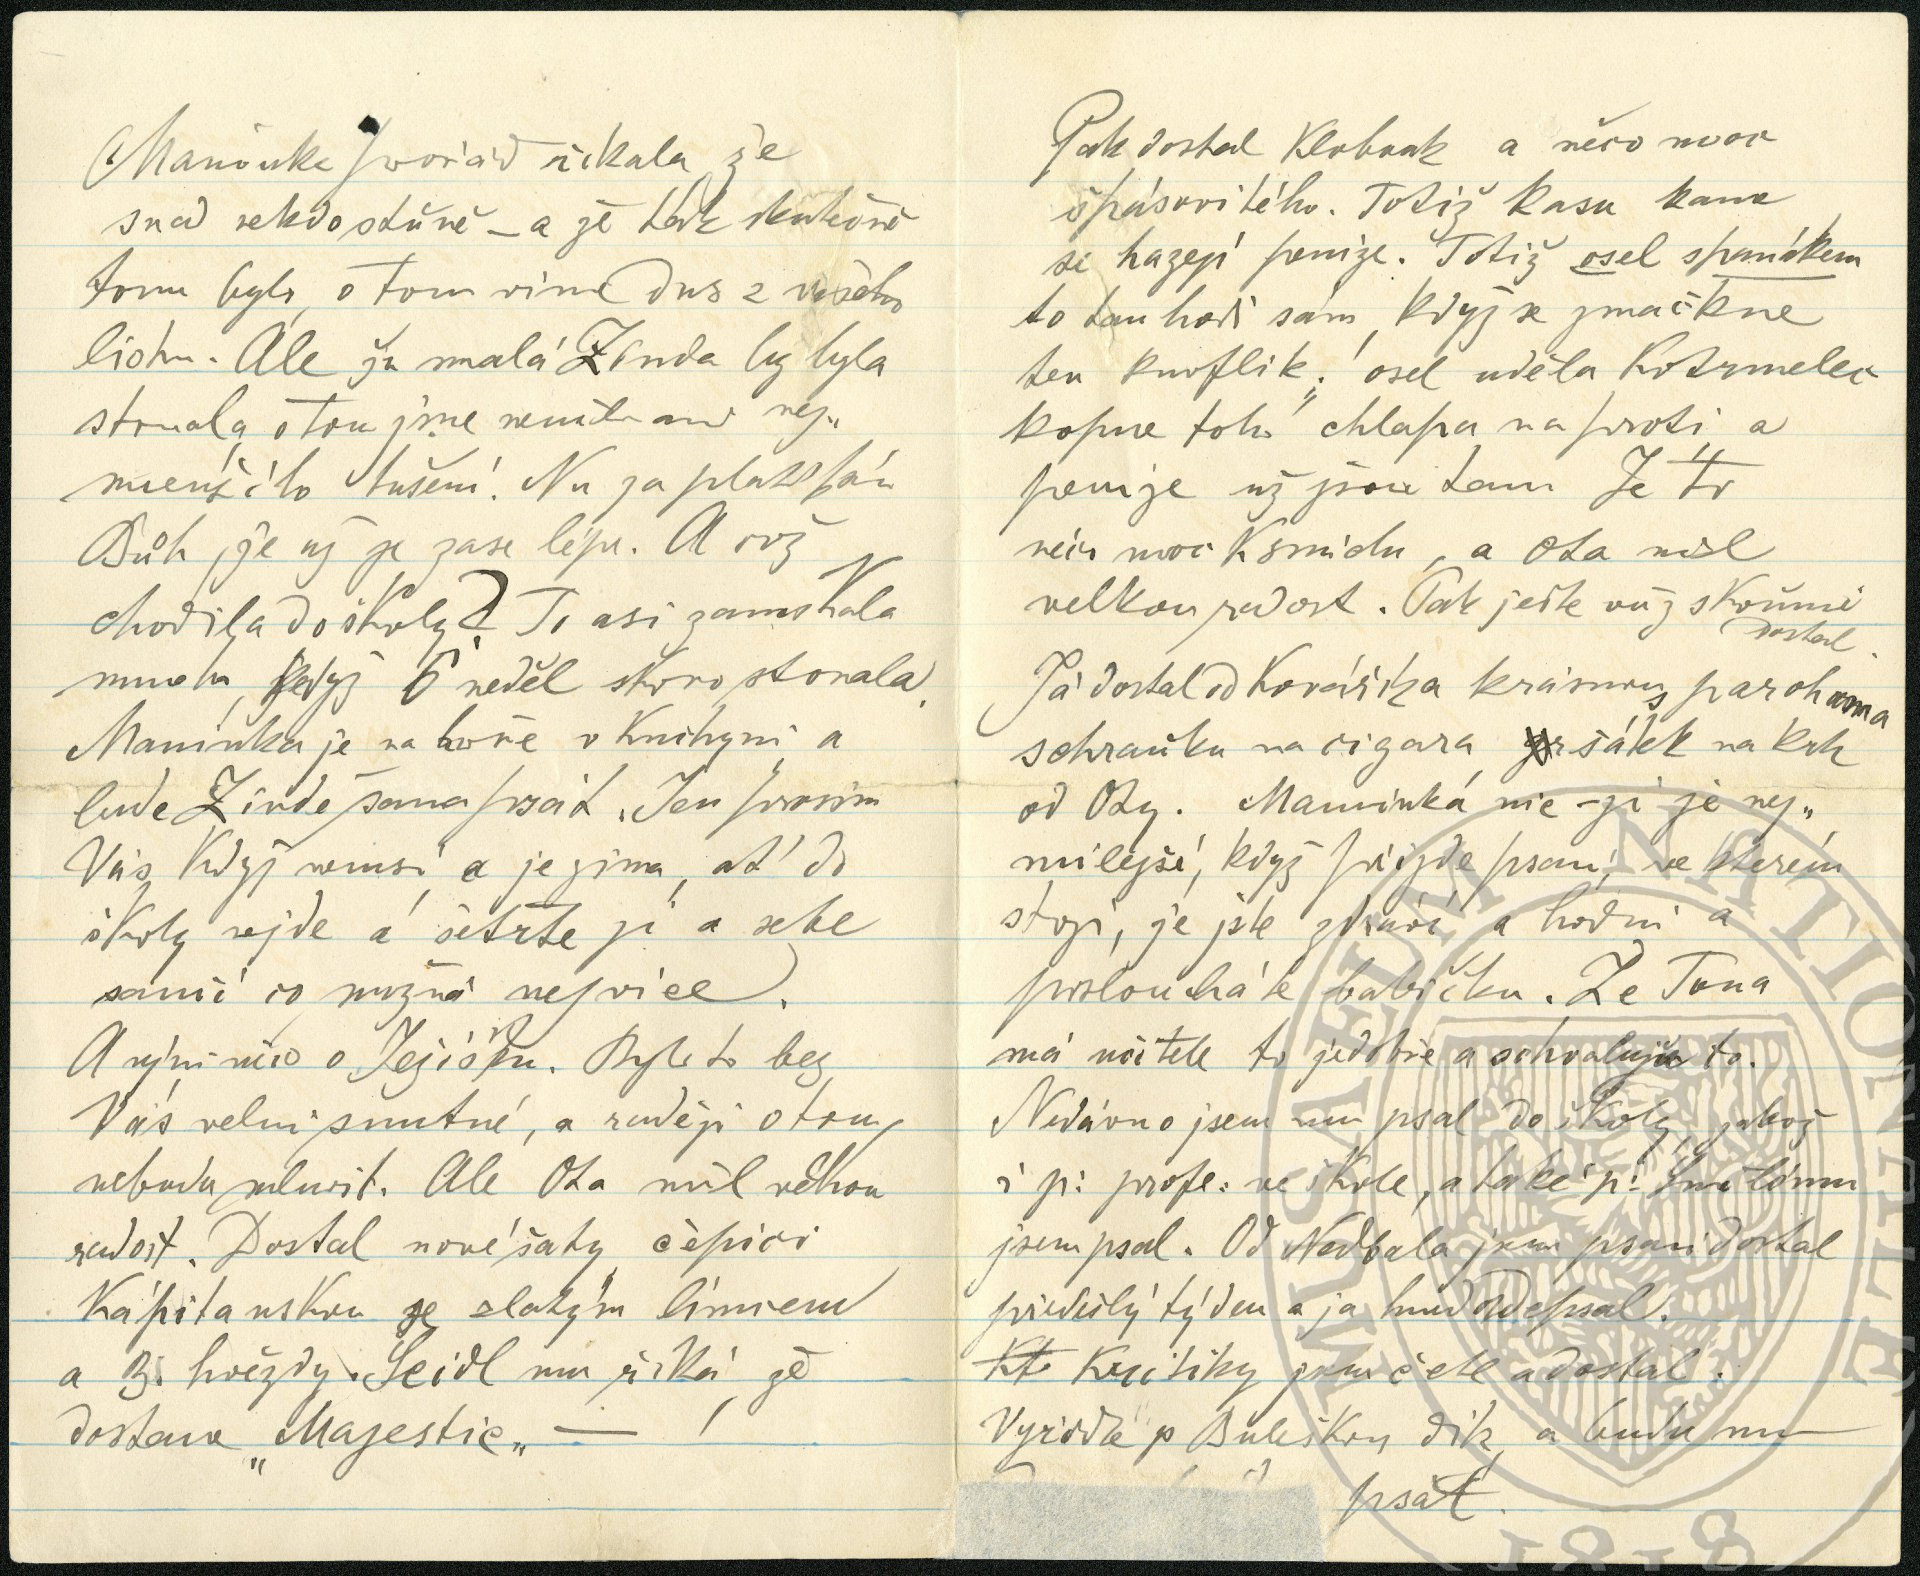 Maminka pořád říkala že
snad nekdo stůně – a že tak skutečně
tomu bylo, o tom vime dnes z vašeho
listu. Ale že malá Zinda by byla
stonala o tom jsme neměli ani nej„
menšího tušení. Nu zaplať pán
Bůh že už je zase lépe. A což
chodila do školy? To asi zameškala
mnoho, když 6 neděl skoro stonala.
Maminka je na hoře v Knihyni a
bude Zindě sama psát. Jen prosím
Vás Když nemusí a je zima, ať do
školy nejde a šetřte ji a sebe
samé co možná nejvíce.
A nyní něco o Ježíšku. Bylo to bez
Vás velmi smutné, a raději o tom
nebudu mluvit. Ale Ota měl velkou
radost. Dostal nové šaty čepici
Kápitanskou se zlatým límcem
a 3 hvězdy. Seidl mu říká, že
dostane „Majestic„ — !
Pak dostal Klobouk a něco moc
špásovitého. Totiž kasu kam
se hazejí penize. Totiž osel spanickem
to tam hodí sám, když se zmačkne
ten knoflik; osel uděla Kotrmelec
kopne toho chlapa naproti a
penize už jsou tam Je to
něco moc K smíchu, a Ota měl
velkou radost. Pak ještě vůz s koňmi
dostal.
Já dostal od Kovaříka krásnou s parohama
schraňku na cigara šátek na krk
od Oty. Maminká nic – jí je nej„
milejší, když přijde psaní, ve kterém
stojí, že jste zdrávi a hodni a
posloucháte babičku. Že Tona
má učitele to je dobře a schvaluju to.
Nedávno jsem mu psal do školy, jakož
i p: profe: ve škole, a také p:
jsem psal. Od Nedbala jsem psaní dostal
předešlý týden a ja hned odepsal.
Kto Kritiky jsem četl a dostal.
Vyřiďte p Buleškou dík, a budu mu
psát.
MUSAEUM NATIONALE
1818